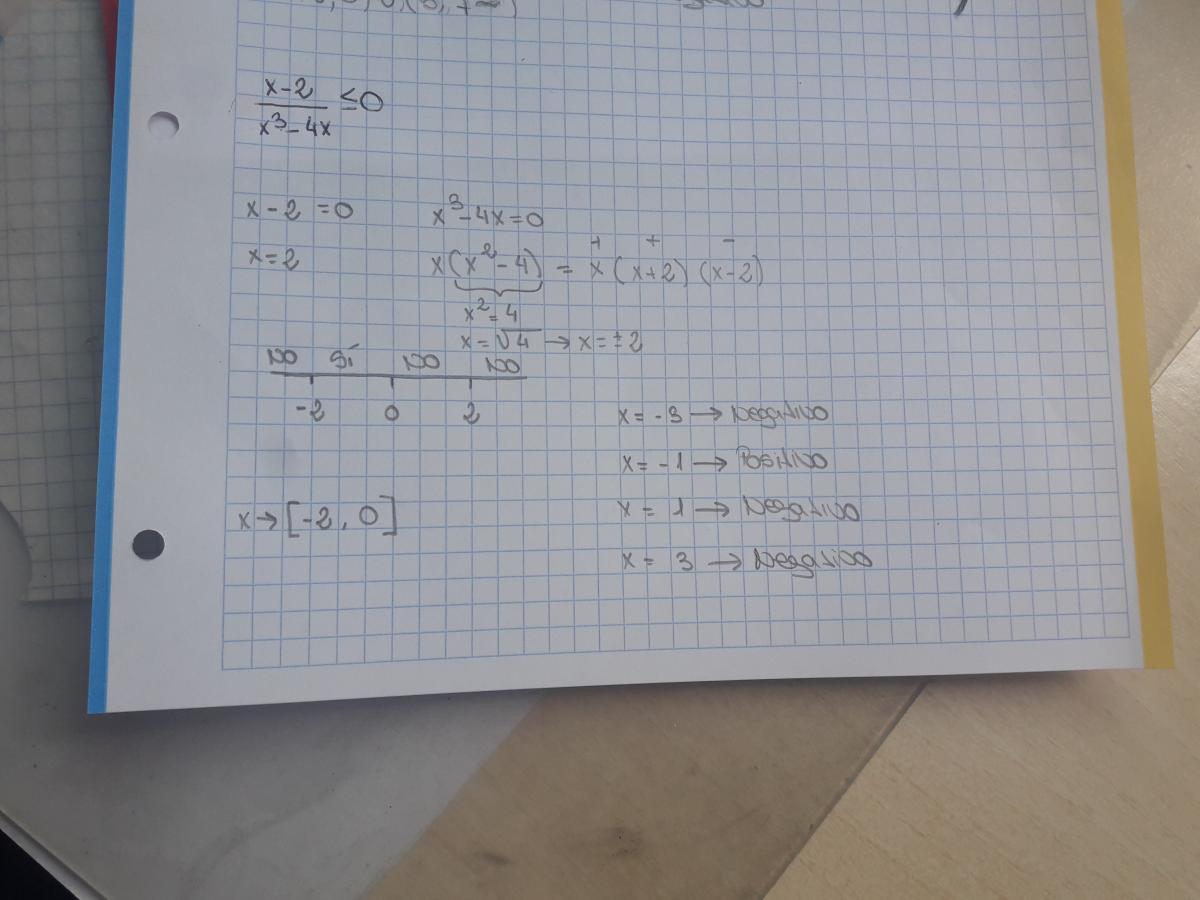 x-2 / x³-4x ≤0
x-2 =0 x³-4x=0
x=2 x(x²-4) = x(x+2)(x-2)
+ + -
x²=4
x=√4 → x=±2
no Sí no no
-2 0 2
x= -3 → Negativo
x= -1 → Positivo
x→[-2, 0]
x= 1 → Negativo
x= 3 → Negativo